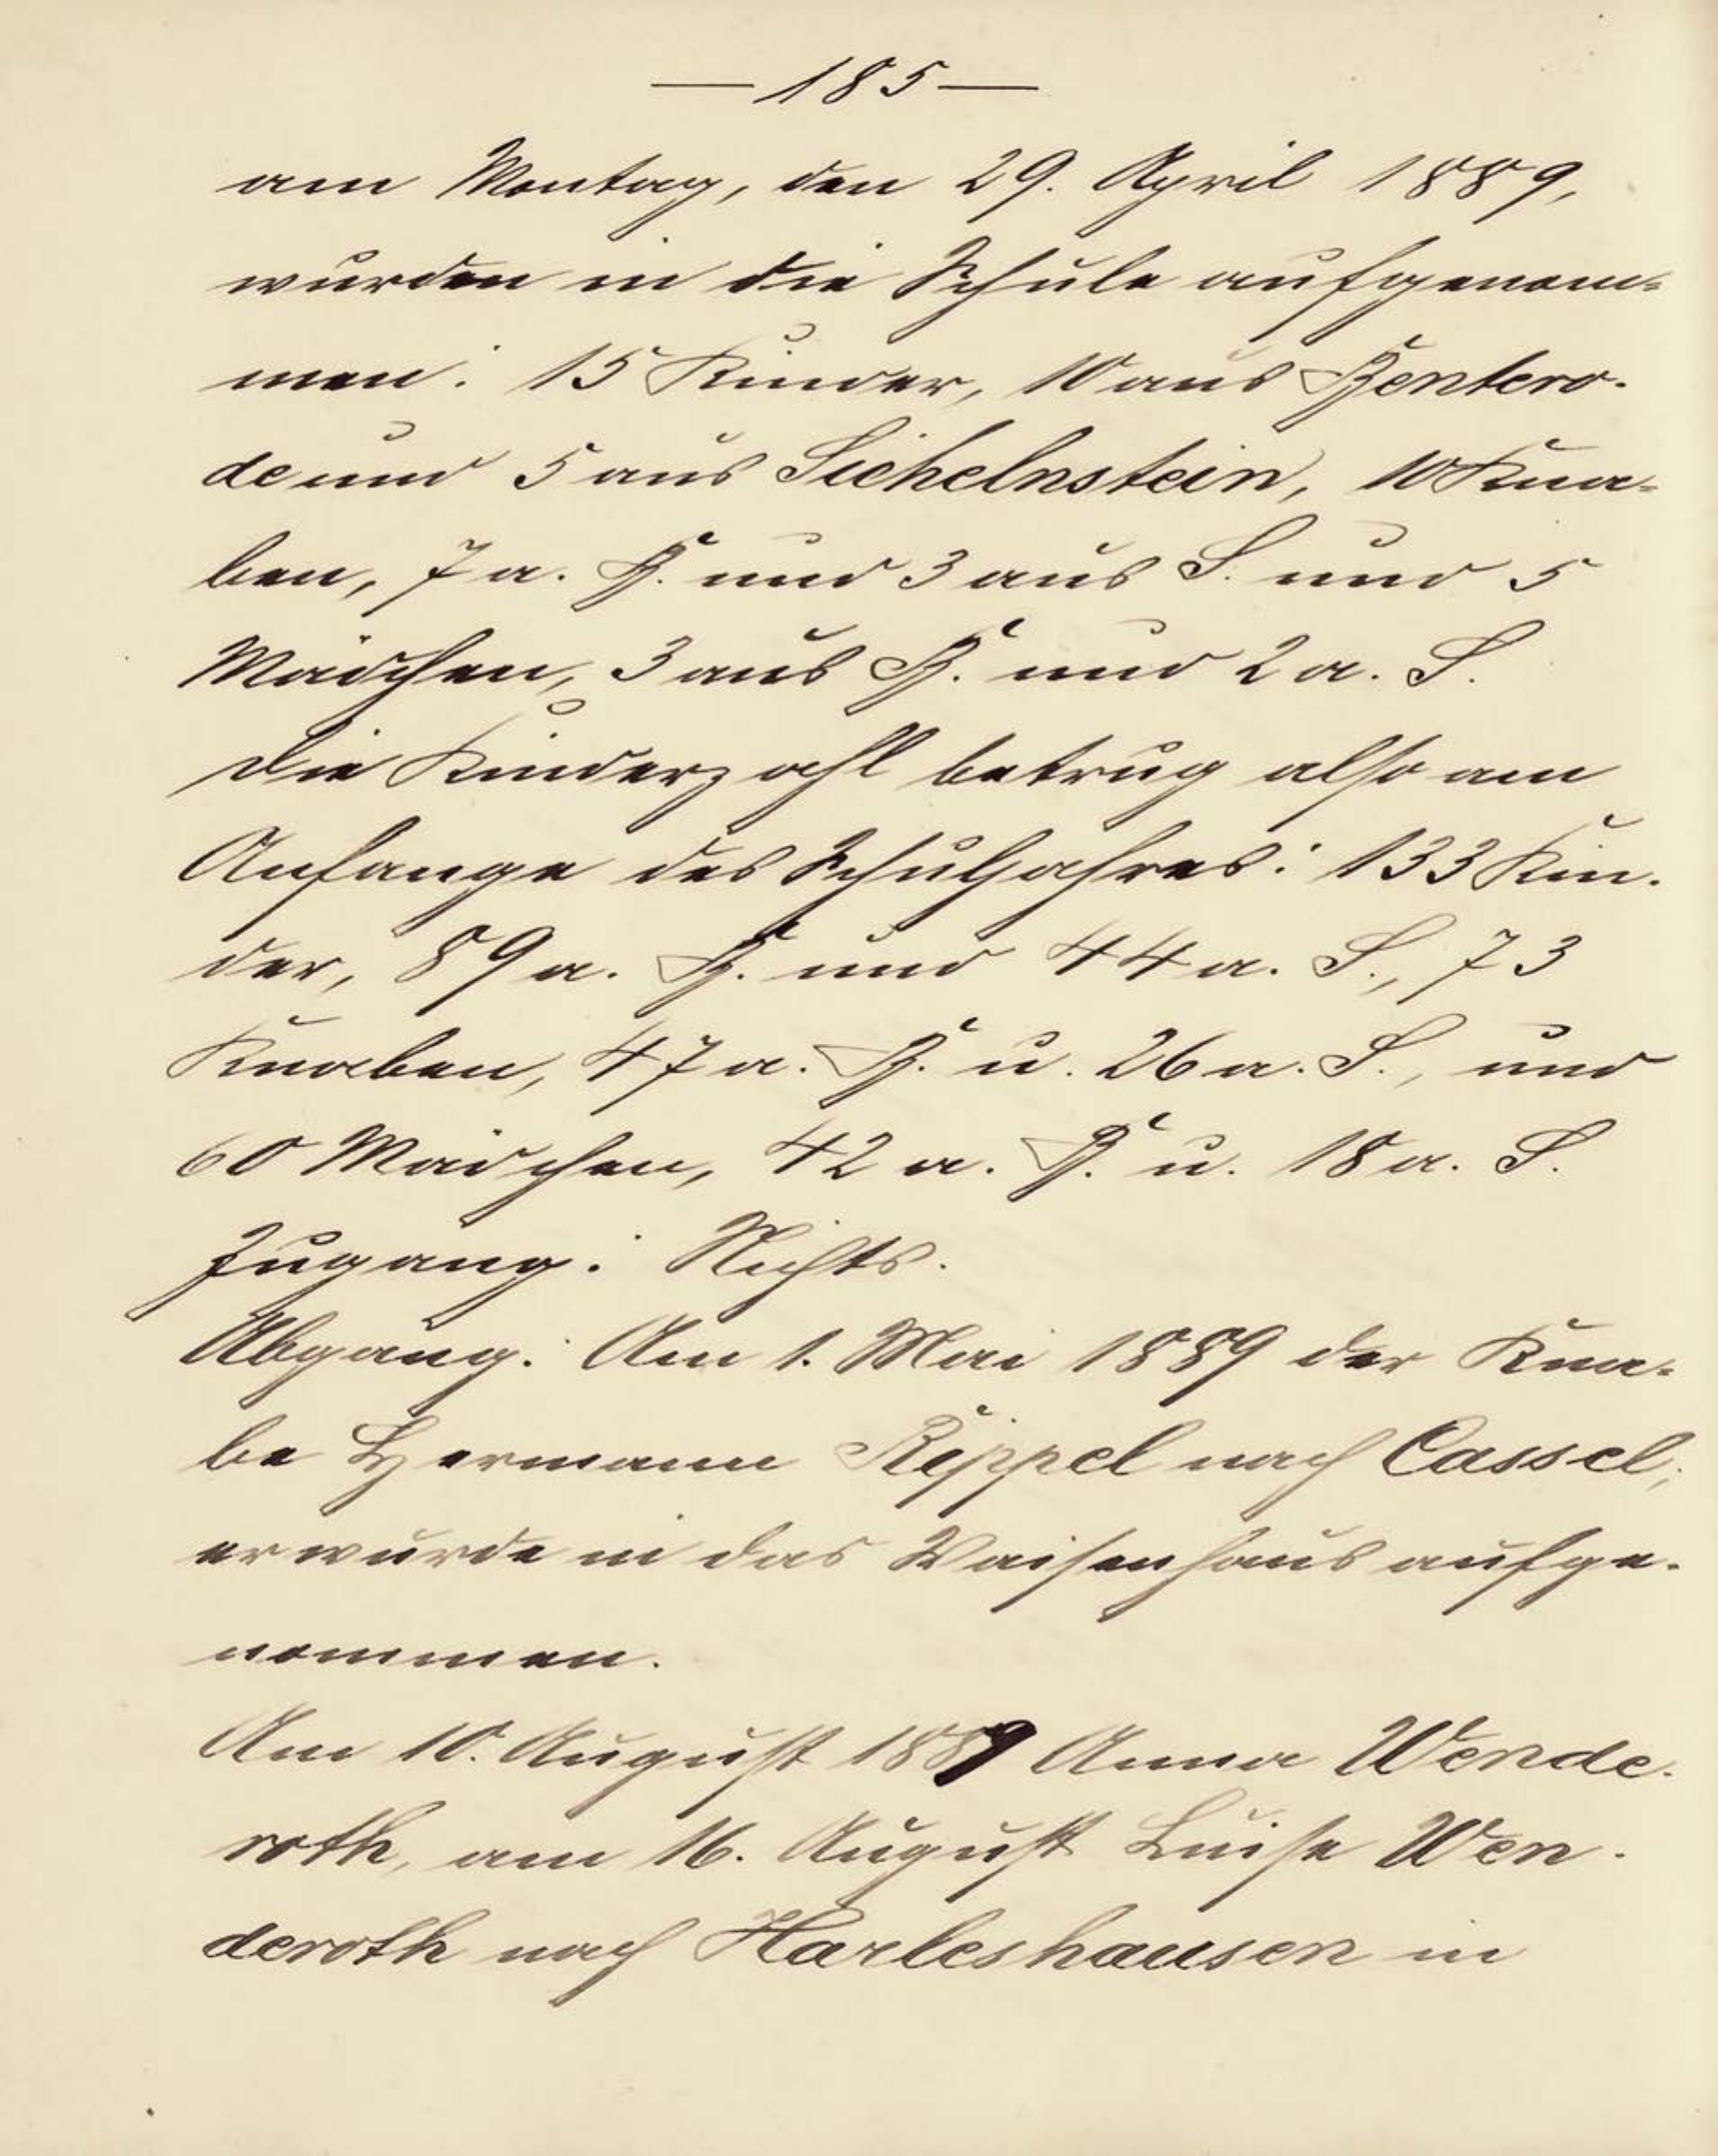 — 185 —
am Montag, den 29. April 1889,
wurden in die Schule aufgenom-
men: 15 Kinder, 10 aus Bentero-
de und 5 aus Sichelnstein, 10 Kna-
ben, 7 a. B. und 3 aus S. und 5
Mädchen, 3 aus B. und 2 a. S.
Die Kinderzahl betrug also am
Anfange des Schuljahres: 133 Kin-
der, 89 a. B. und 44 a. S., 73
Knaben, 47 a. B. u. 26 a. S., und
60 Mädchen, 42 a. B. u. 18 a. S.
Zugang: Nichts.
Abgang: Am 1. Mai 1889 der Kna-
be Hermann Reppel nach Cassel;
er wurde in das Waisenhaus aufge-
nommen.
Am 10. August 1889 Anna Wende-
roth, am 16. August Luise Wen-
deroth nach Harleshausen in